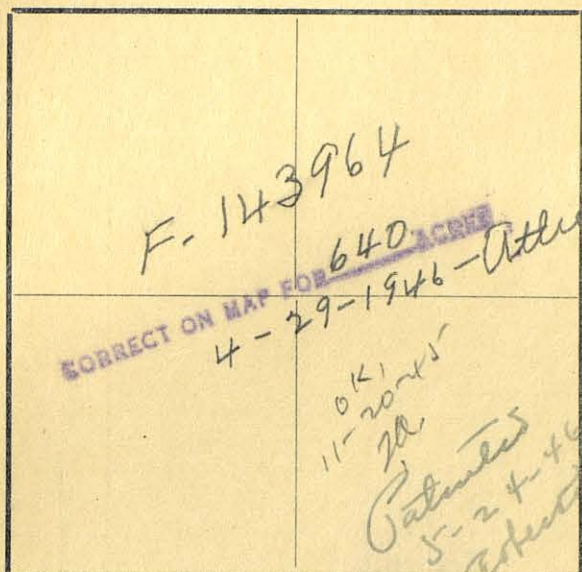 F. 143964
CORRECT ON MAP FOR 640 ACRES
4-29-1946-
OK,
11-20-45
Patented
5-24-46